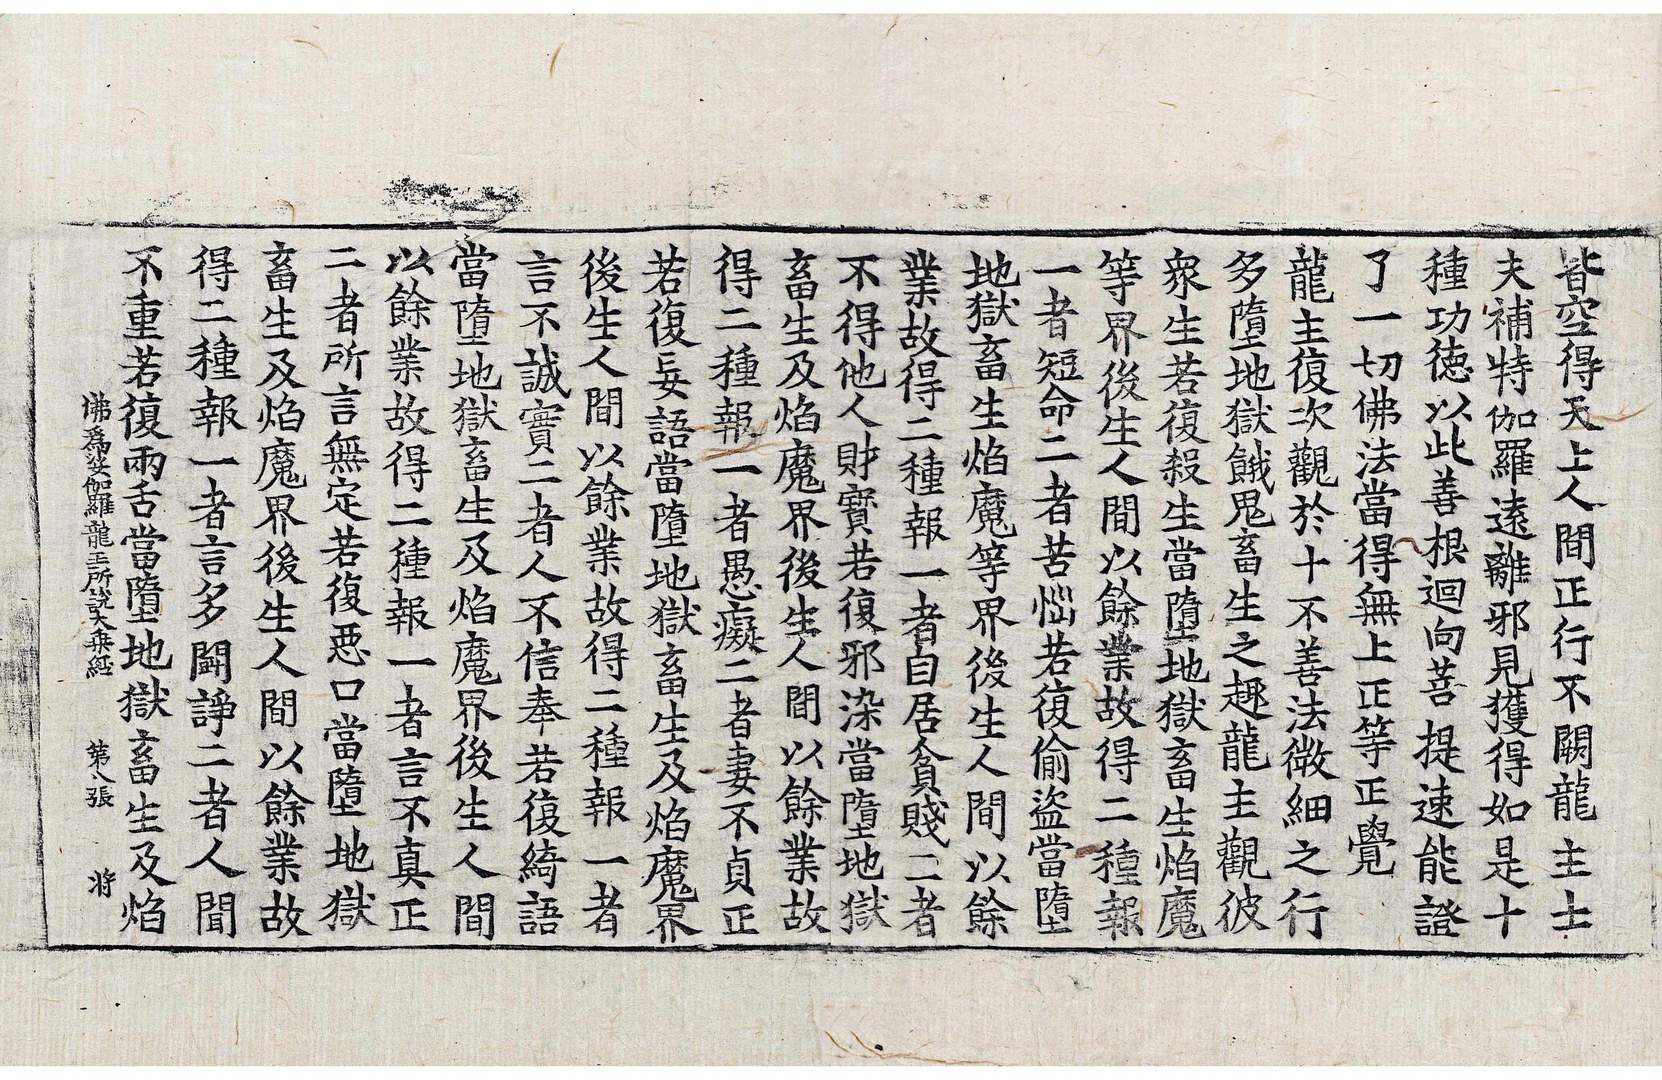 皆空得天上人間正行不闕龍主士
夫補特伽羅遠離邪見獲得如是十
種功德以此善根迴向菩提速能證
了一切佛法當得無上正等正覺
龍主復次觀於十不善法微細之行
多墮地獄餓鬼畜生之趣龍主觀彼
衆生若復殺生當墮地獄畜生焰魔
等界後生人間以餘業故得二種報
一者短命二者苦惱若復偷盜當墮
地獄畜生焰魔等界後生人間以餘
業故得二種報一者自居貪賤二者
不得他人財寶若復邪染當墮地獄
畜生及焰魔界後生人間以餘業故
得二種報一者愚癡二者妻不貞正
若復妄語當墮地獄畜生及焰魔界
後生人間以餘業故得二種報一者
言不誠實二者人不信奉若復綺語
當墮地獄畜生及焰魔界後生人間
以餘業故得二種報一者言不真正
二者所言無定若復惡口當墮地獄
畜生及焰魔界後生人間以餘業故
得二種報一者言多鬪諍二者人聞
不重若復兩舌當墮地獄畜生及焰
佛爲娑伽羅龍王所說大乘經 第八張 将